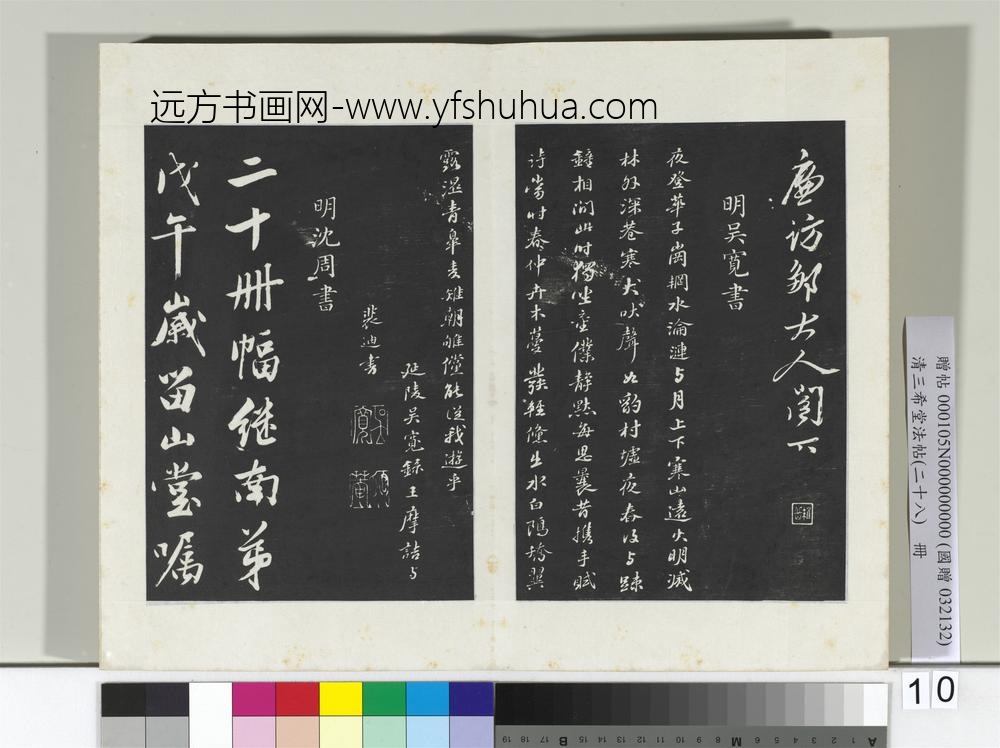 远方书画网-www.yfshuhua.com
廉访鄒大人閣下
明吴寬書
夜登華子崗輞水淪漣与月上下寒山遠火明滅
林外深巷寒犬吠聲如豹村墟夜舂復与踈
鐘相間此时獨坐童僕静默每思曩昔携手賦
詩當时春仲卉木蔓發輕鯈出水白鷗矯翼
露湿青皋麦雉朝雊儻能從我遊乎
延陵吴寬録王摩詰与
裴迪書
明沈周書
二十冊幅继南弟
戊午歲留山堂嘱
贈帖 000105N000000000 (國贈 032132)
清三希堂法帖(二十八) 冊
10
A 1 2 3 4 5 6 M 8 9 10 11 12 13 14 15 B 17 18 19